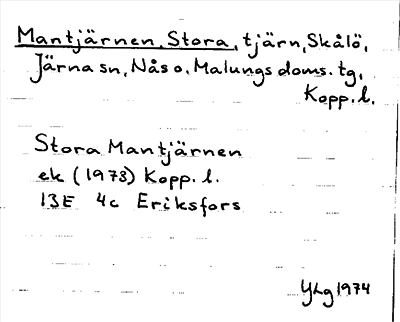 Mantjärnen, Stora, tjärn, Skålö,
Järna sn, Nås o. Malungs doms. tg,
Kopp. l.
Stora Mantjärnen
ek (1973) Kopp. l.
13E 4c Eriksfors
YLg 1974